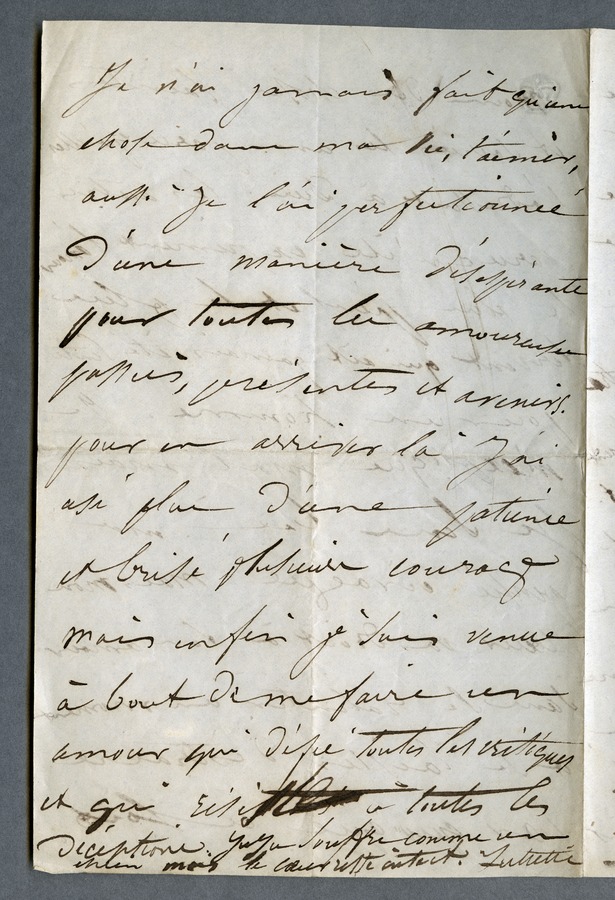 Je n'ai jamais fait qu'une
chose dans ma vie, t'aimer,
aussi je l'ai perfectionnée
d'une manière désespérante
pour toutes les amoureuses
passées, présentes et avenirs.
pour en arriver là j'ai
usé plus d'une patience
et brisé plusieurs courages
mais enfin je suis venue
à bout de me faire un
amour qui défie toutes les critiques
et qui résiste à toutes les
déceptions. J'y souffre comme un
chien mais le cœur reste intact. Juliette